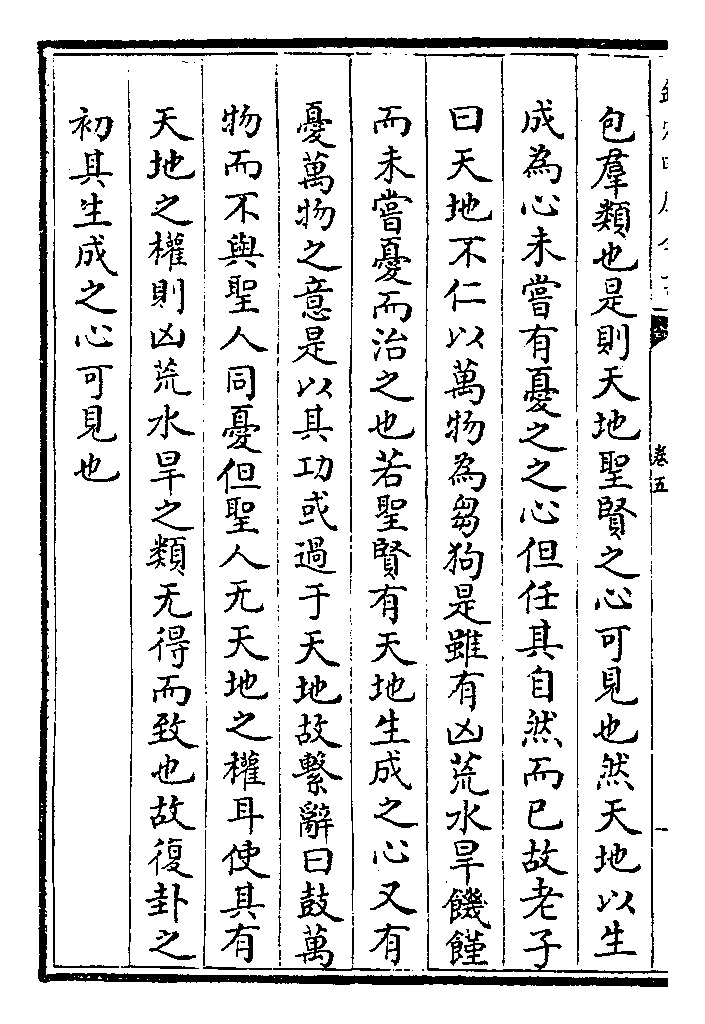 包羣類也是則天地聖賢之心可見也然天地以生
成為心未嘗有憂之之心但任其自然而已故老子
曰天地不仁以萬物為芻狗是雖有凶荒水旱饑饉
而未嘗憂而治之也若聖賢有天地生成之心又有
憂萬物之意是以其功或過于天地故繫辭曰鼓萬
物而不與聖人同憂但聖人无天地之權耳使其有
天地之權則凶荒水旱之類无得而致也故復卦之
初其生成之心可見也
卷五